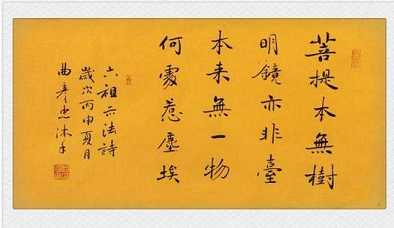 菩提本無樹
明鏡亦非臺
本来無一物
何處惹塵埃
六祖示法詩
歲次丙申夏月
曲沐手